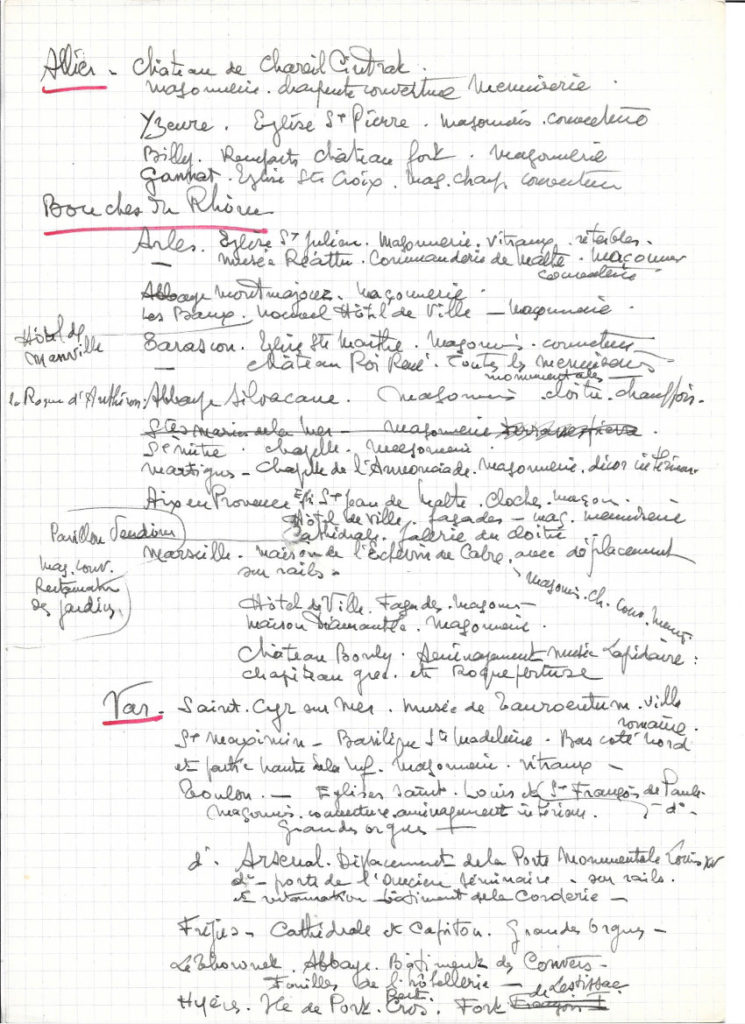 Allier - Château de Chareil Cintrat.
maçonnerie. charpente couverture Menuiserie.
Yzeure. Eglise St Pierre. maçonnerie. couverture
Billy. Remparts château fort. maçonnerie
Gannat. Eglise Ste Croix. mac. charp couverture
Bouches du Rhône
Arles. Eglise St Julien. Maçonnerie. vitraux. retables.
— musée Réattu. Commanderie de Malte. maçonnerie
couverture
Abbaye Montmajour. Maçonnerie.
Les Baux. Nouvel Hôtel de Ville — maçonnerie.
Hôtel de
Manville
Tarascon. Eglise Ste Marthe. Maçonnerie. couverture
— château Roi René. Toutes les menuiseries
monumentales
la Roque d'Anthéron. Abbaye Silvacane. Maçonnerie cloître. chauffoir.
Stes Maries de la Mer - maçonnerie
St Mitre. chapelle. maçonnerie
Martigues - Chapelle de l'Annonciade. Maçonnerie. décor intérieur
Aix en Provence Egl. St Jean de Malte. Cloches. maçon.
Hôtel de Ville. façades - mac. menuiserie
Cathédrale. Galerie du cloître
Pavillon Vendôme
mac. couv.
Restauration
des jardins
Marseille. maison de l'Echevin de Cabre. avec déplacement
sur rails.
maçonn. Ch. Couv. Menuis
Hôtel de Ville. Façades. maçonn
maison Diamantée. maçonnerie.
Château Borély. Aménagement musée Lapidaire:
chapiteau grec. et Roquepertuse
Var. Saint. Cyr sur Mer. musée de Tauroentum. villa
romaine.
St Maximin - Basilique Ste Madeleine. Bas coté Nord
et partie haute de la nef. maçonnerie. vitraux -
Toulon. - Eglises Saint. Louis et St François de Paule
maçonnerie. couverture. aménagement intérieur. - d°-
Grandes orgues -
d°. Arsenal. Déplacement de la Porte Monumentale Louis XV
d° - porte de l'Ancien Séminaire - sur rails.
et restauration bâtiment de la Corderie -
Fréjus - Cathédrale et Capitou. Grandes Orgues -
Le Thoronet. Abbaye. Bâtiment des Convers -
Fouilles de l'hôtellerie -
Hyères. Ile de Port. Cros. Fort de Lestissac
François I